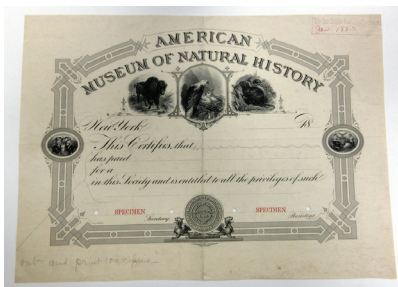 AMERICAN
MUSEUM OF NATURAL HISTORY
New York 18
This Certifies, that
has paid
for a
in this Society and is entitled to all the privileges of such
SPECIMEN SPECIMEN
Secretary.
and print